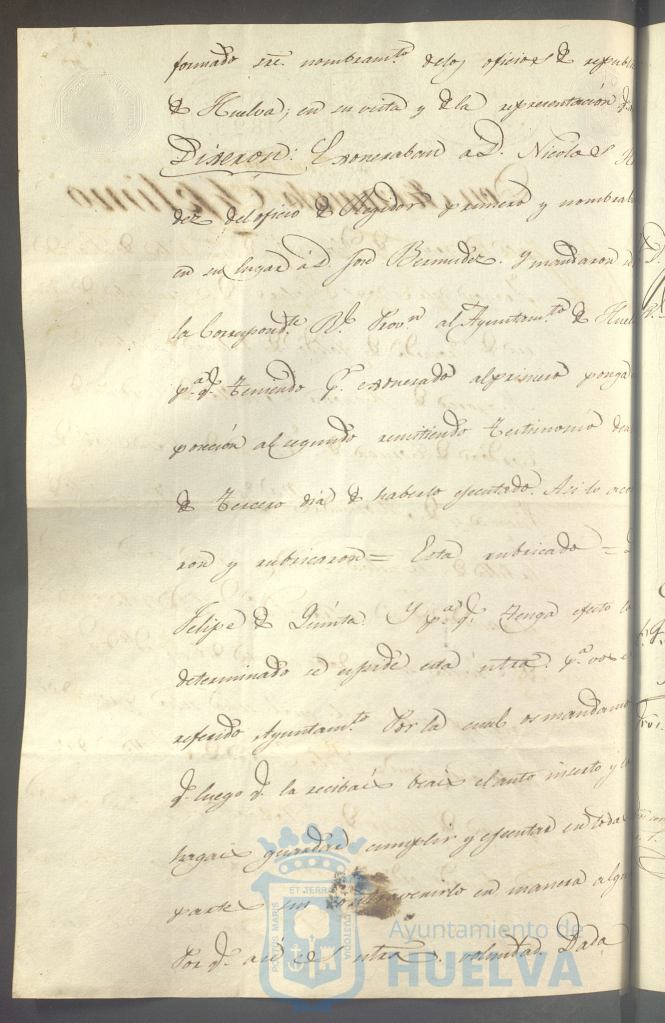 formado sre. nombramto. delos oficios de republi
de Huelva; en su vista y de la representación
Dixeron: Exoneraban a D. Nicolas
dez del oficio de Regidor primero y nombrab
en su lugar á D. José Bermudez. Y mandaron
la Correspondte. Rl. Provn al Ayuntamto. de Huel
pa. q. teniendo pr. exonerado al primero ponga
poseción al segundo remitiendo testimonio
de tercero dia de haberlo egecutado. Asi lo aco
ron y rubricaron = Está rubricado =
Felipe de Quinta. Y pa. q. tenga efecto lo
determinado se espide esta ntra. pa. vos el
referido Ayuntamto. Por la cual os mandamos
q. luego q. la recibais veais el auto inserto y lo
hagais guardar cumplir y egecutar en todas
partes sin contravenirlo en manera algu
Por q. asi es ntra. voluntad. Dada
PORTUS MARIS ET TERRAE CUSTODIA
Ayuntamiento de
HUELVA